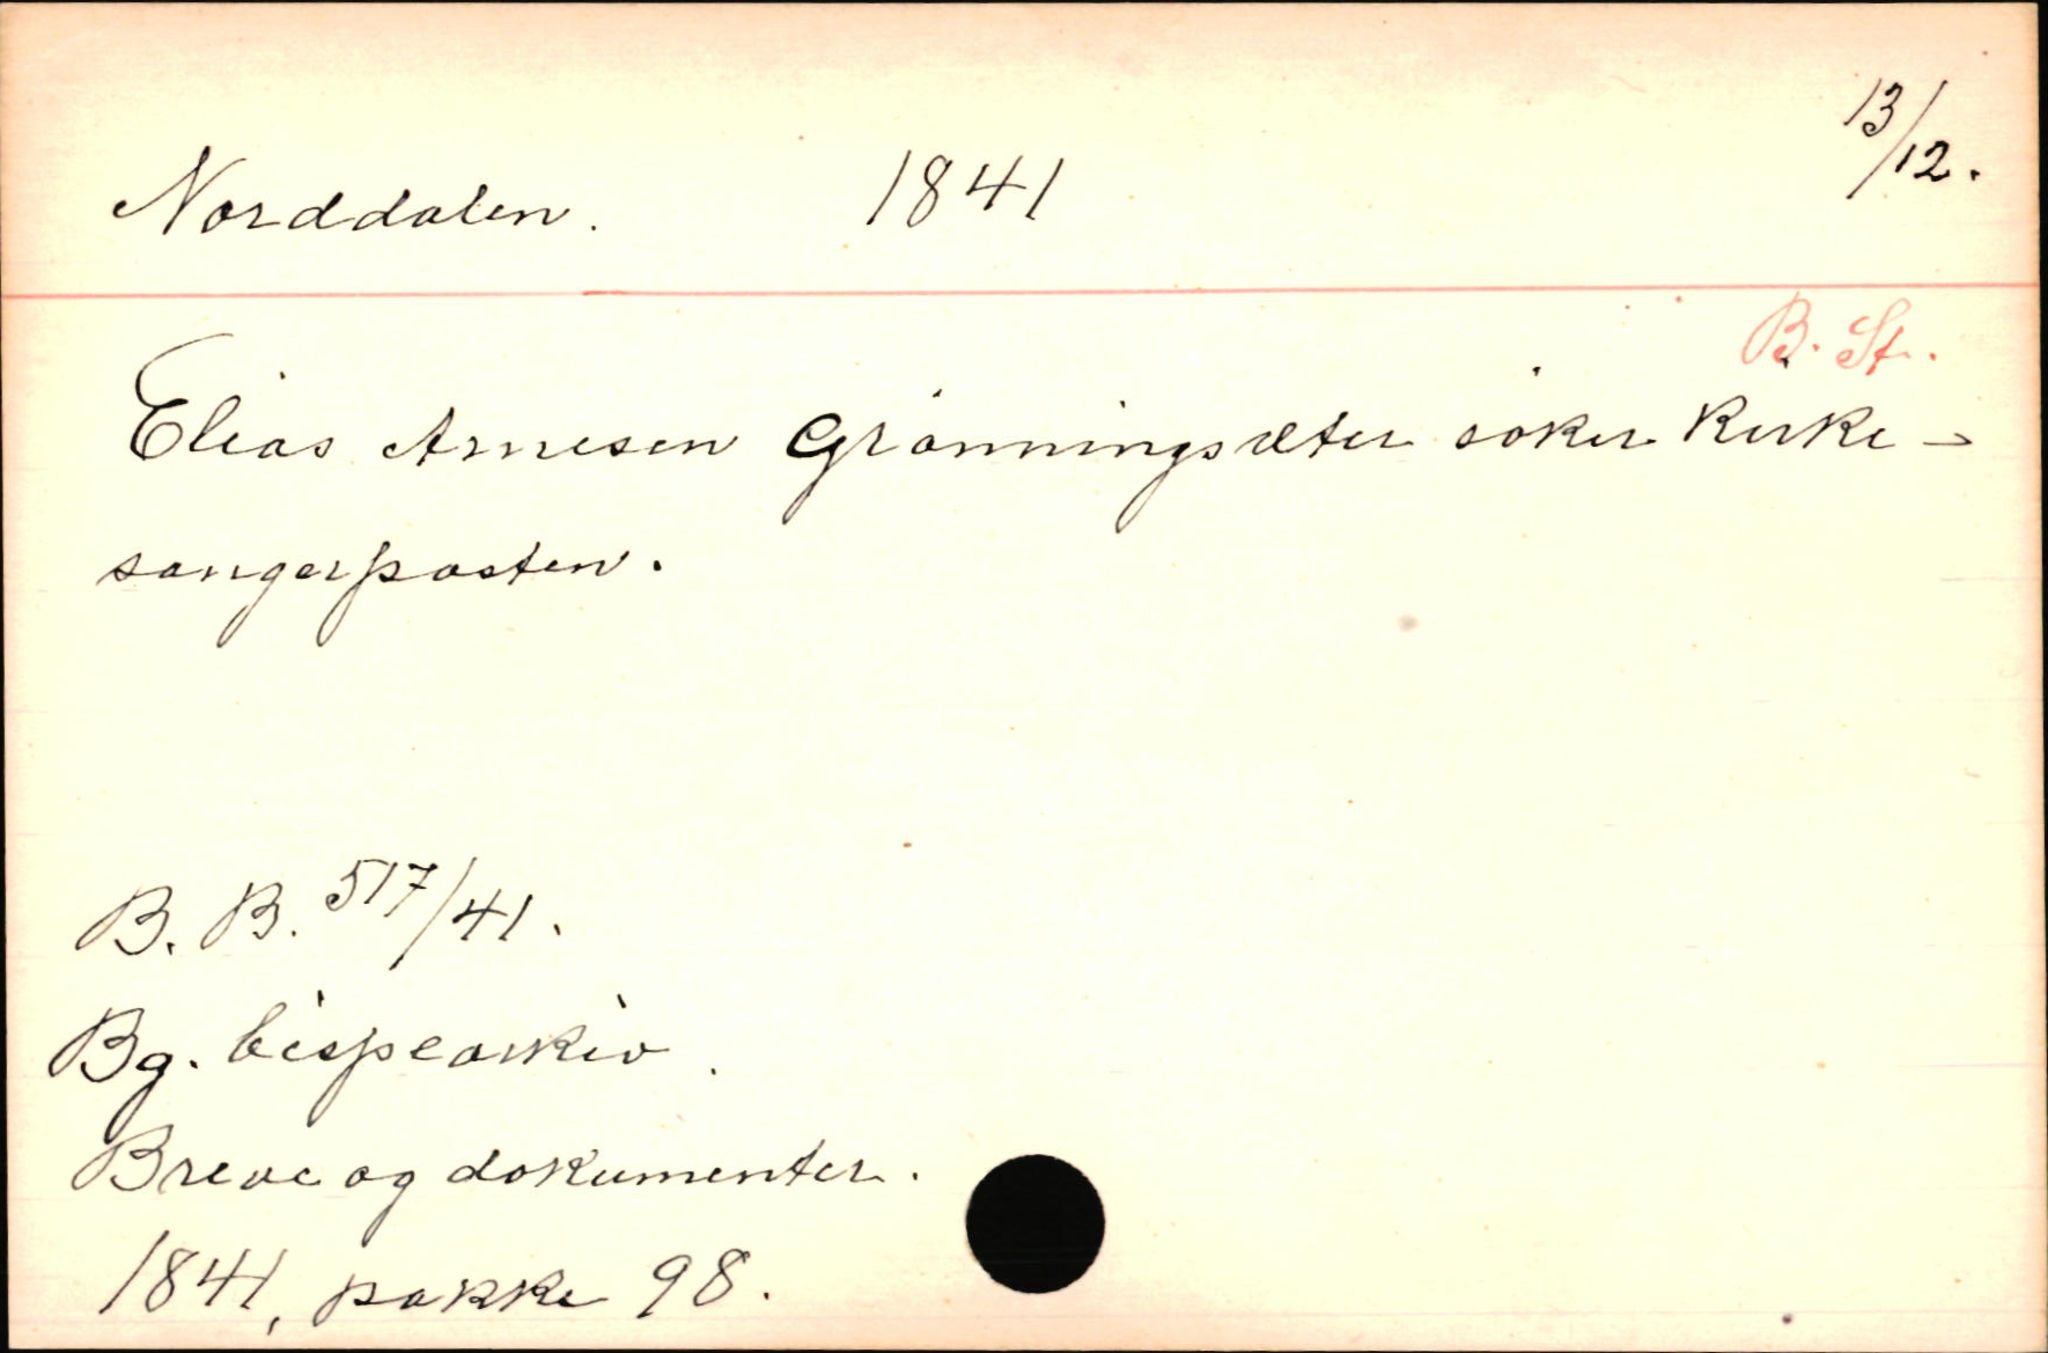 Norddalen. 1841 13/12.
B. St.
Elias Arnesen Grönningsæter söker Kirke-
sangerposten.
B. B. 517/41.
Bg. bispearkiv.
Breve og dokumenter.
1841, pakke 98.